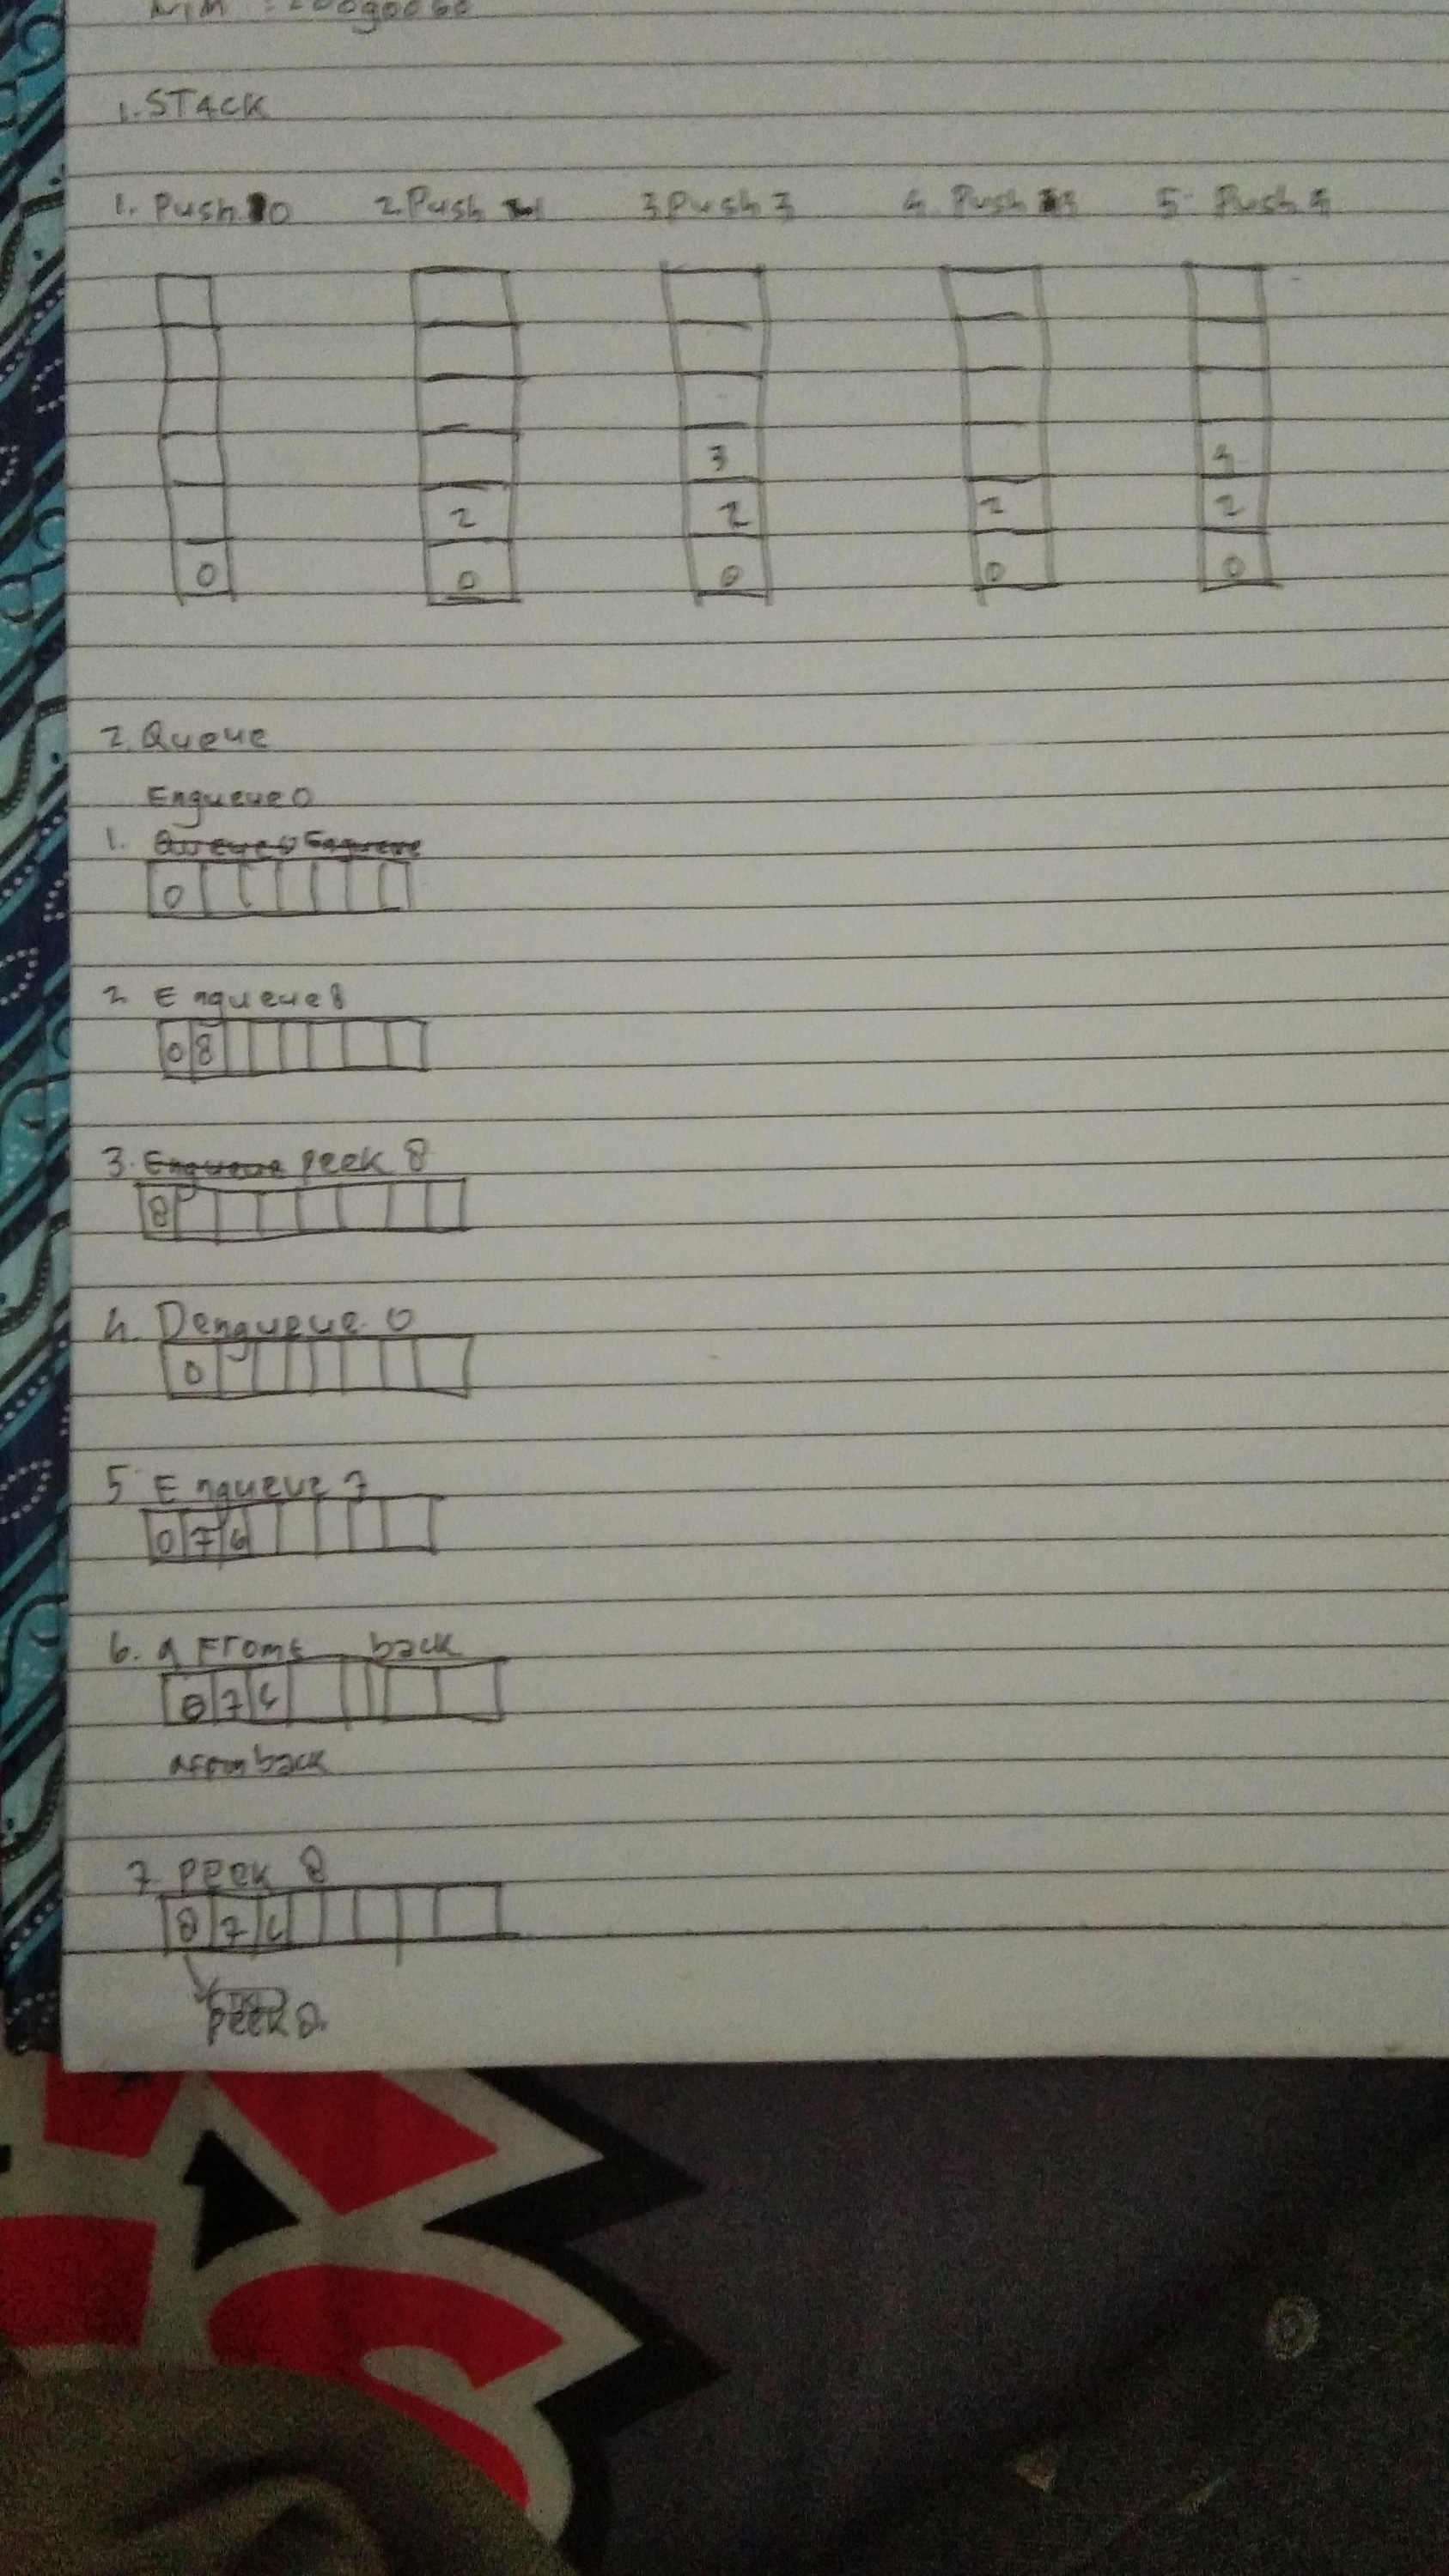 1. STACK
1. Push 0 2. Push 3 Push 3 4. Push 5. Push 4
3 4
2 2 2 2
0 0 0 0 0
2. Queue
Enqueue 0
1.
0
2. Enqueue 8
0 8
3. Enqueue peek 8
8
4. Denqueue 0
0
5 Enqueue 7
0 7 6
6. q Front back
8 7 6
back
7 peek 8
8 7 6
peek 8